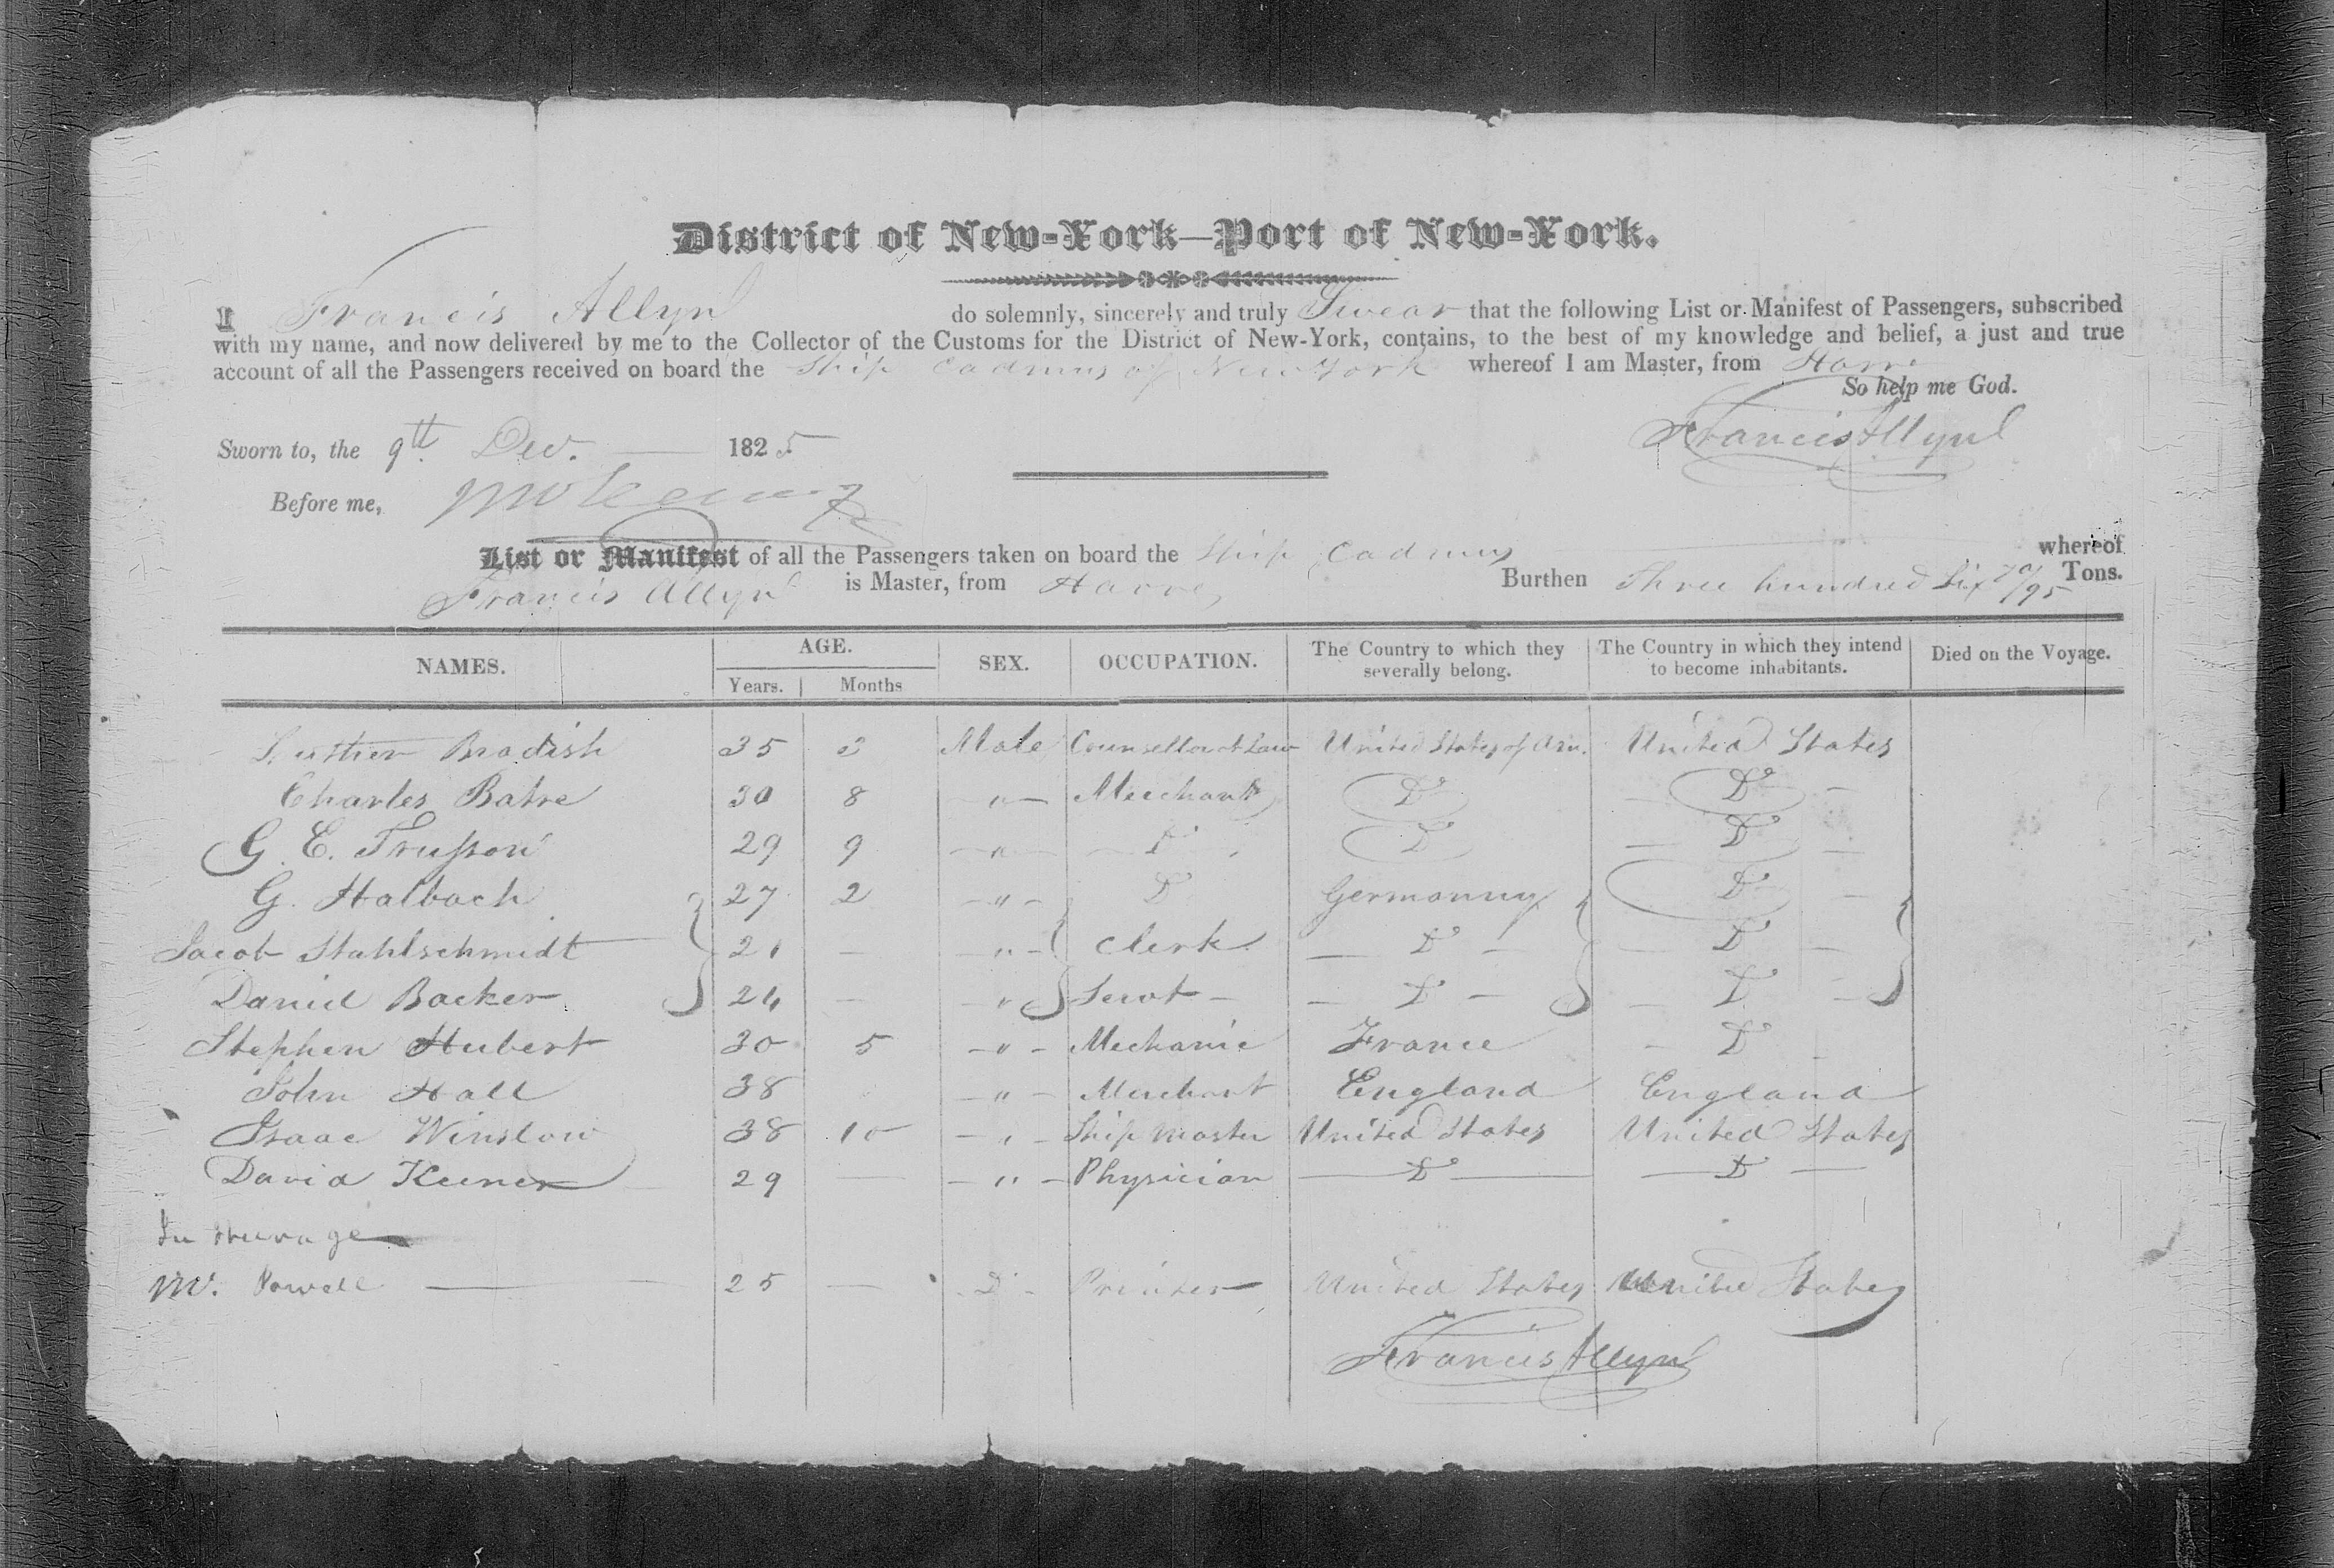 District of New-York—Port of New-York.
I Francis Allyn do solemnly, sincerely and truly Swear that the following List or Manifest of Passengers, subscribed
with my name, and now delivered by me to the Collector of the Customs for the District of New-York, contains, to the best of my knowledge and belief, a just and true
account of all the Passengers received on board the Ship Cadmus of New York whereof I am Master, from Havre
So help me God.
Francis Allyn
Sworn to, the 9th Dec. 1825
Before me,
List or Manifest of all the Passengers taken on board the Ship Cadmus whereof
Francis Allyn is Master, from Havre, Burthen Three hundred Six /95 Tons.
NAMES. AGE. SEX. OCCUPATION. The Country to which they severally belong. The Country in which they intend to become inhabitants. Died on the Voyage.
Years. Months
Luther Bradish 35 3 Male Counsellor at Law United States of Am. United States
Charles Bahre 30 8 " Merchant Do Do
G. E. Trusson 29 9 " Do Do Do
G. Halbach 27 2 " Do Germanny Do
Jacob Stahlschmidt 21 — " Clerk Do Do
David Backer 24 — " Servt Do Do
Stephen Hubert 30 5 " Mechanic France Do
John Hall 38 " Merchant England England
Isaac Winslow 38 10 " Ship Master United States United States
David Keener 29 — " Physician Do Do
In Steerage
Mr. Powell 25 — Do Printer United States United States
Francis Allyn